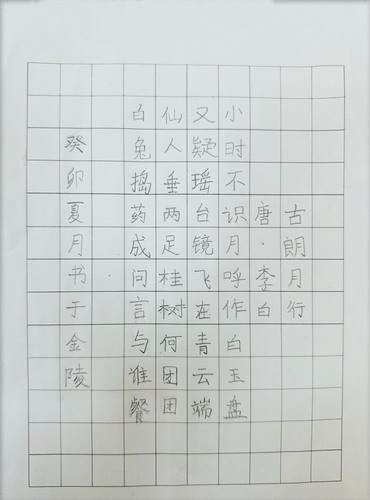 古朗月行
唐·李白
小时不识月呼作白玉盘
又疑瑶台镜飞在青云端
仙人垂两足桂树何团团
白兔捣药成问言与谁餐
癸卯夏月书于金陵